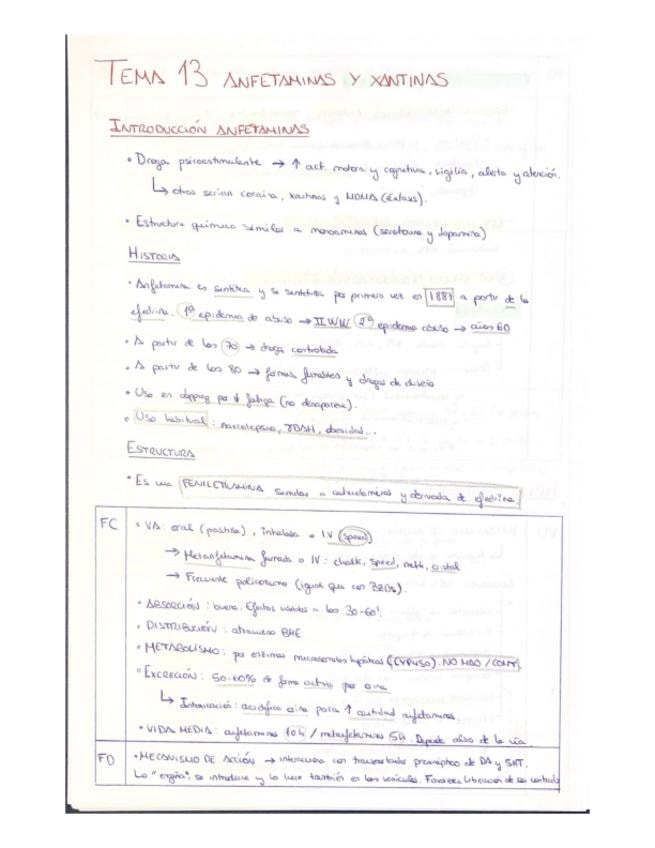 TEMA 13 ANFETAMINAS Y XANTINAS
INTRODUCCIÓN ANFETAMINAS
• Droga psicoestimulante → ↑ act. motora y cognitiva, vigilia, alerta y atención.
↳ otros serían cocaína, xantinas y MDMA (éxtasis).
• Estructura química similar a monoaminas (serotonina y dopamina)
HISTORIA
• Anfetamina es sintética y se sintetiza por primera vez en 1887 a partir de la
efedrina. 1ª epidemia de abuso → II WW 2ª epidemia abuso → años 60
• A partir de los 70 → droga controlada
• A partir de los 80 → formas fumables y drogas de diseño
• Uso en dopping por ↓ fatiga (no desaparece).
• Uso habitual: narcolepsia, TDAH, obesidad...
ESTRUCTURA
• Es una FENILETILAMINA similar a catecolaminas y derivada de efedrina
FC • VA: oral (pastilla), inhalada o I.V (speed)
→ Metanfetamina fumada o IV: chalk, speed, meth, cristal
→ Frecuente policonsumo (igual que con BZDs).
• ABSORCIÓN: buena. Efectos a los 30-60'.
• DISTRIBUCIÓN: atraviesa BHE
• METABOLISMO: por enzimas microsomales hepáticas (CYP450). NO MAO / COMT
• EXCRECIÓN: 50-60% de forma activa por orina
↳ Intoxicación: acidifica orina para ↑ cantidad anfetamina
• VIDA MEDIA: anfetaminas 10h / metanfetaminas 5h. Depende de la vía.
FD • MECANISMO DE ACCIÓN → interacciona con transportador presináptico de DA y 5HT.
Lo "engaña", se introduce y lo hace también en las vesículas. Favorece liberación de su contenido